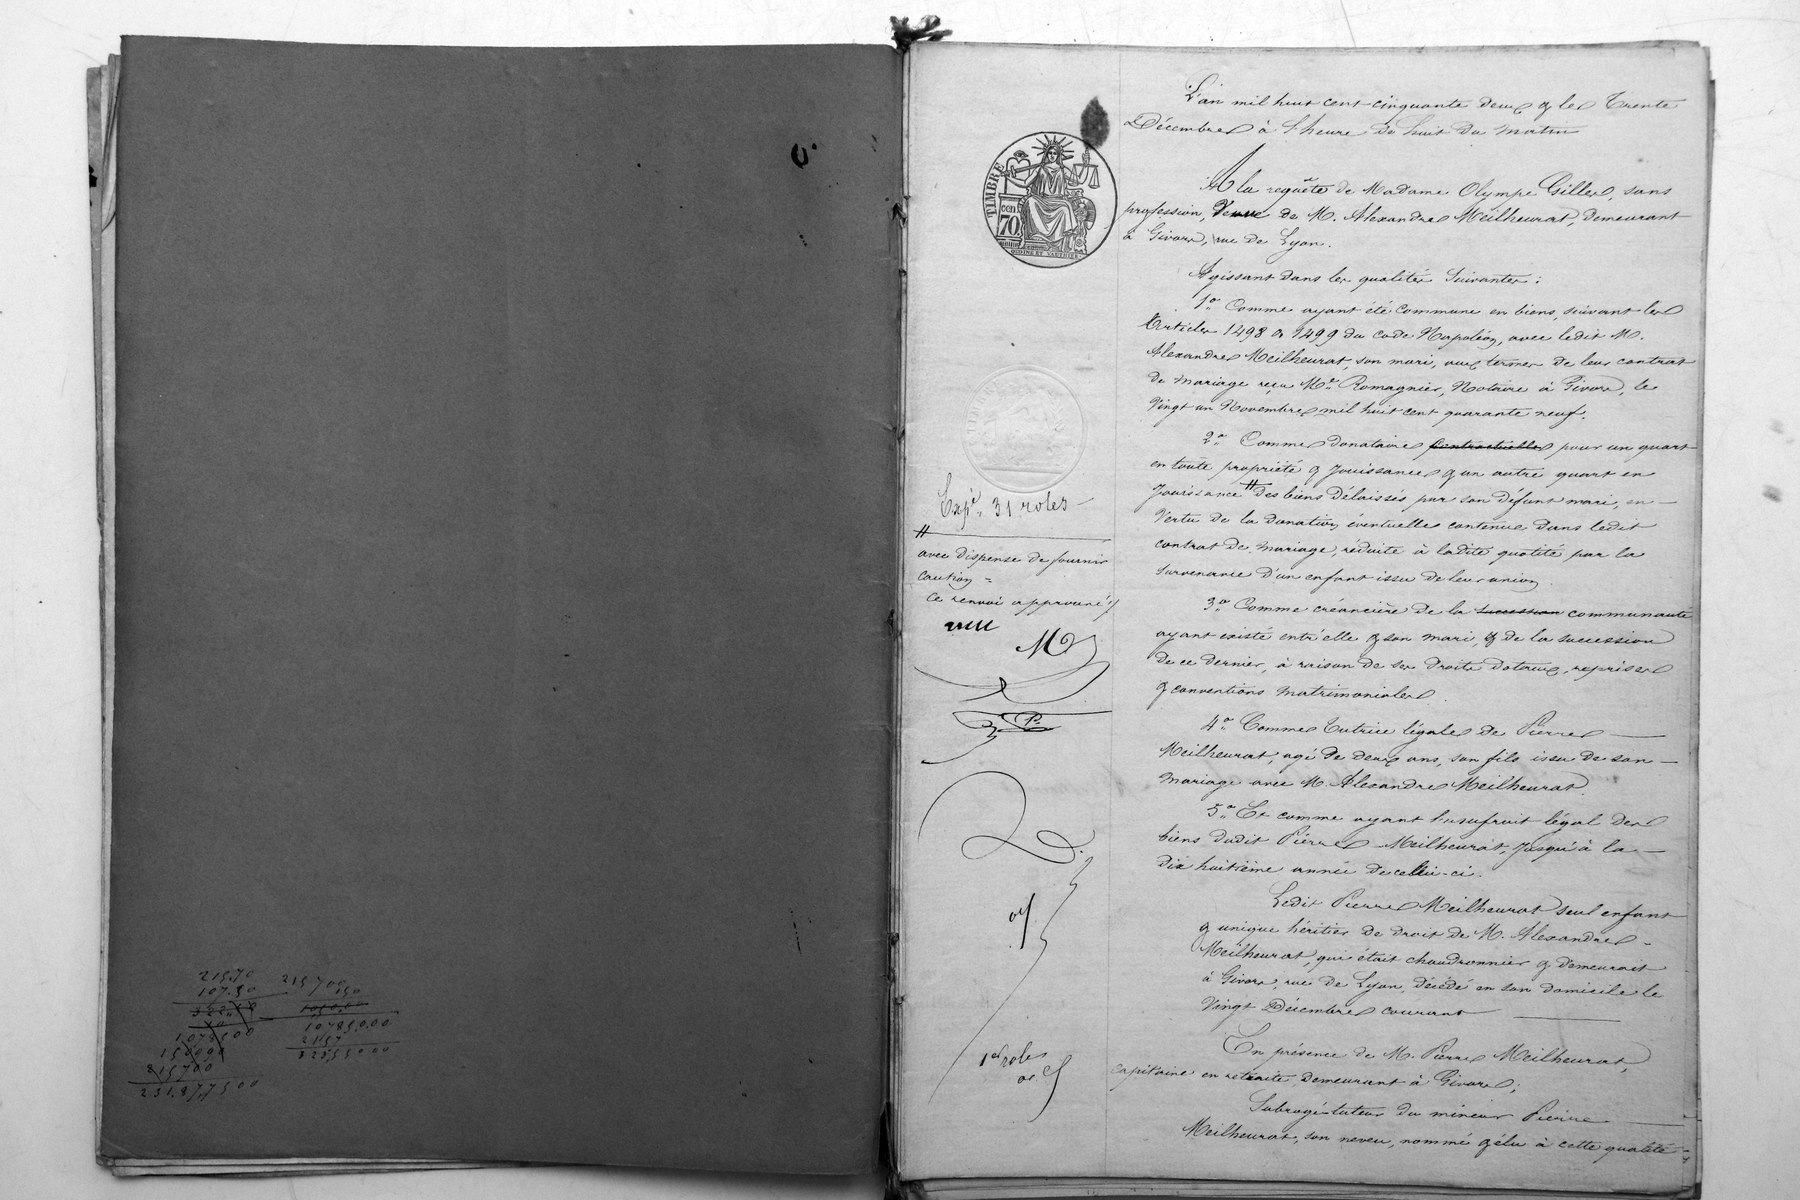 215.70
107.50
10785 00
215700
231.877500
215700
150
10785000
21157
L'an mil huit cent cinquante deux & le Trente
Décembre à l'heure de huit du matin
TIMBRE
cen.
70
A la requête de Madame Olympe Gille, sans
profession, Veuve de M. Alexandre Meilheurat, demeurant
à Givors, rue de Lyon.
Agissant dans les qualités suivantes :
1° Comme ayant été commune en biens, suivant les
Articles 1498 & 1499 du code Napoléon, avec ledit M.
Alexandre Meilheurat, son mari, aux termes de leur contrat
de mariage reçu Me Romagnier, Notaire à Givors, le
Vingt un Novembre mil huit cent quarante neuf.
2° Comme donataire contractuelle pour un quart
en toute propriété & Jouissance & un autre quart en
Jouissance # des biens délaissés par son défunt mari, en
Vertu de la donation éventuelle contenue dans ledit
contrat de mariage, réduite à ladite quotité par la
survenance d'un enfant issu de leur union
3° Comme créancière de la succession communauté
ayant existé entr'elle & son mari, & de la succession
de ce dernier, à raison de ses droits dotaux, reprises
& conventions matrimoniales.
4° Comme Tutrice légale de Pierre
Meilheurat, agé de deux ans, son fils issu de son
mariage avec M. Alexandre Meilheurat
5° Et comme ayant l'usufruit légal des
biens dudit Pierre Meilheurat, Jusqu'à la
dix huitième année de celui-ci.
Ledit Pierre Meilheurat seul enfant
& unique héritier de droit de M. Alexandre
Meilheurat, qui était chaudronnier & demeurait
à Givors, rue de Lyon, décédé en son domicile le
Vingt Décembre courant
En présence de M. Pierre Meilheurat,
capitaine en retraite, demeurant à Givors ;
Subrogé-tuteur du mineur Pierre
Meilheurat, son neveu, nommé & élu à cette qualité
Expé. 31 roles
#
avec dispense de fournir
caution =
ce renvoi approuvé
M
1er roles